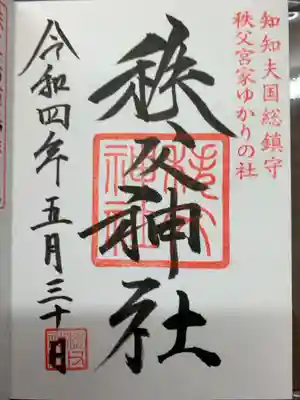 知知夫国総鎮守
秩父宮家ゆかりの社
秩父神社
秩父神社
令和四年五月三十日